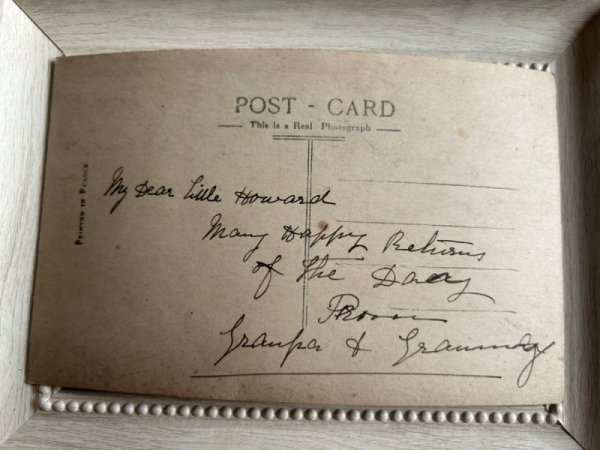 POST - CARD
This is a Real Photograph
PRINTED IN FRANCE
My Dear little Howard
Many Happy Returns
of the Day
From
Granpa & Granmdy